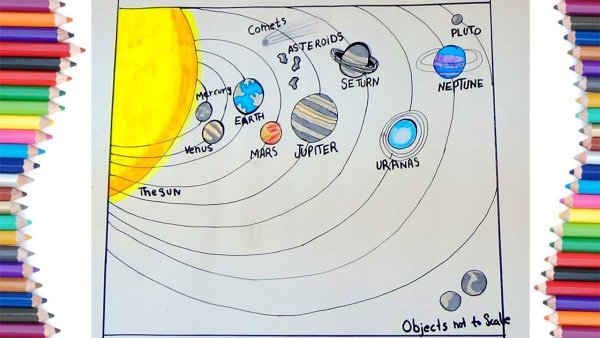 Comets
PLUTO
ASTEROiDS
SETURN
NEPTUNE
Mercury
EARTH
Venus
MARS
JUPITER
URANAS
The SUN
Objects not to Scale